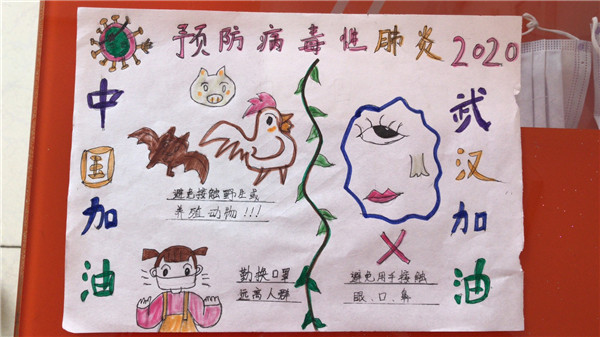 预防病毒性肺炎2020
中国加油
避免接触野生或
养殖动物!!!
勤换口罩
远离人群
避免用手接触
眼、口、鼻
武汉加油